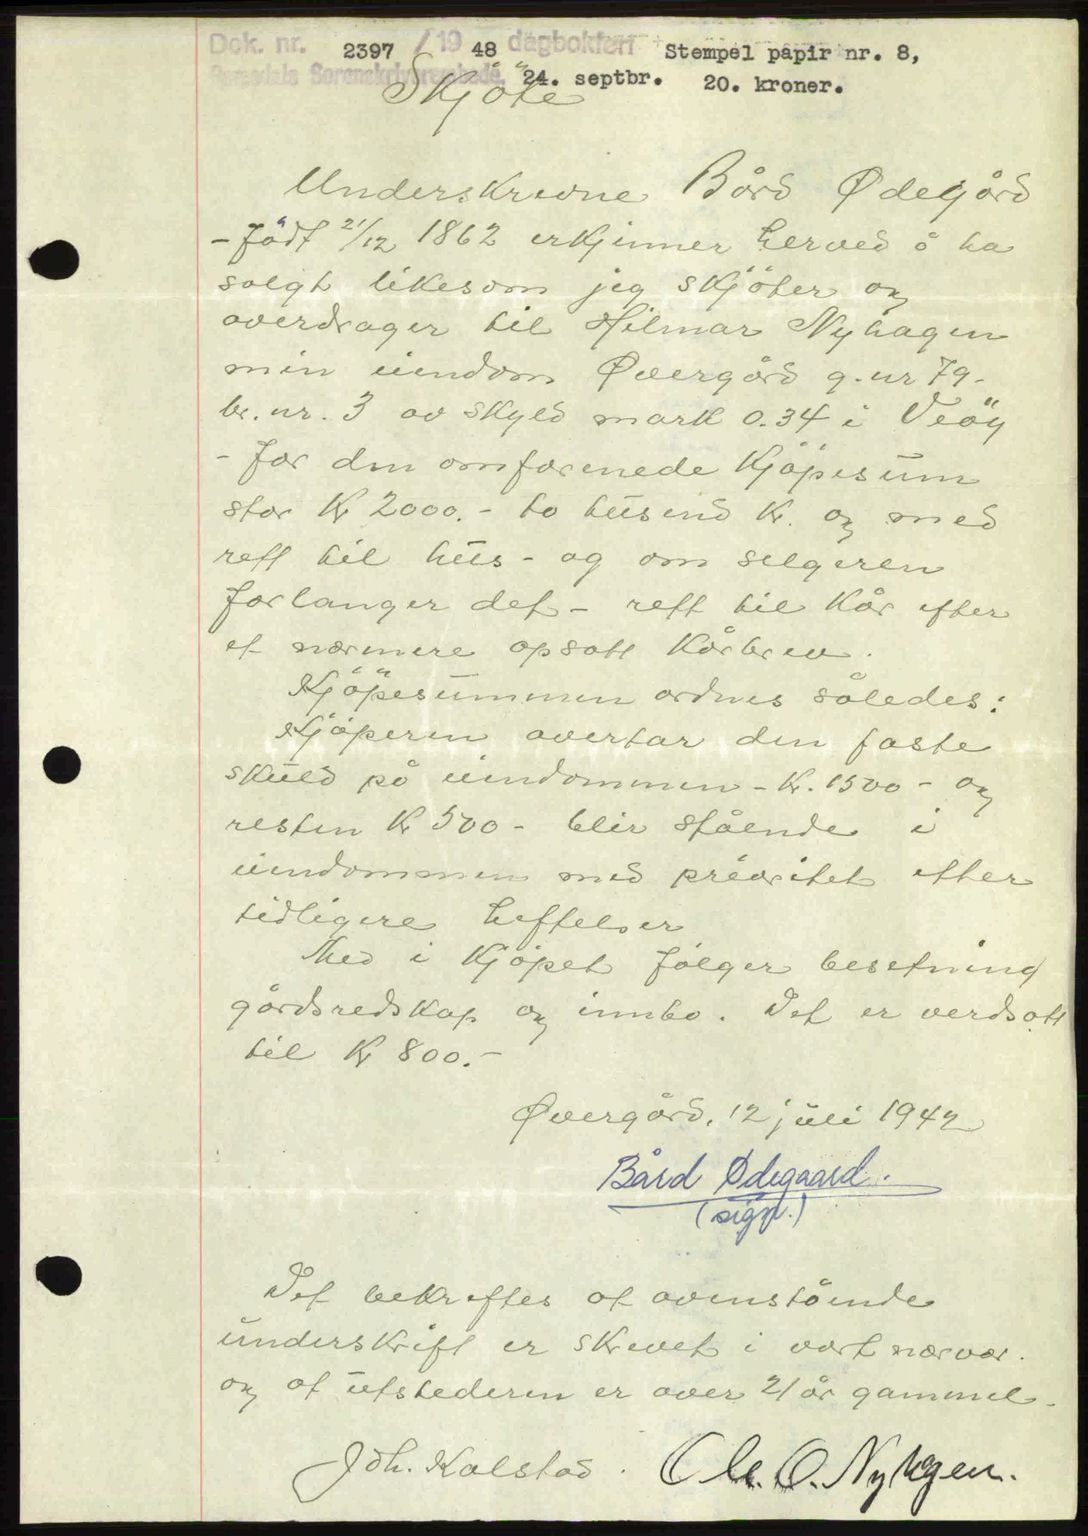 Dok. nr. 2397 /19 48 dagbokført Stempel papir nr. 8,
Sorenskriverembede, 24. septbr. 20. kroner.
Skjöte
Underskrevne Bård Ødegård
- född 21/12 1862 erkjenner herved å ha
solgt likesom jeg skjöter og
overdrager til Hilmar Nyhagen
min eiendom Øvergård g. nr 79.
br. nr. 3 av skyld mark 0.34 i Veöy
- for den omforenede kjöpesum
stor Kr 2000.- to tusend Kr. og med
rett til hus - og om selgeren
forlanger det - rett til kår efter
et nærmere opsatt kårbrev.
Kjöpesummen ordnes således:
Kjöperen overtar den faste
skuld på eiendommen - Kr. 1500 - og
resten Kr 500 - blir stående i
eiendommen med prioritet efter
tidligere heftelser
Med i kjöpet fölger besetning
gårdsredskap og innbo. Det er verdsatt
til Kr 800.-
Øvergård, 12 juli 1942
Bård Ødegaard.
(sign.)
Det bekreftes at ovenstående
underskrift er skrevet i vort nærvær.
og at utstederen er over 21 år gammel.
Joh. Kolstad. Ole. O. Nyhagen.